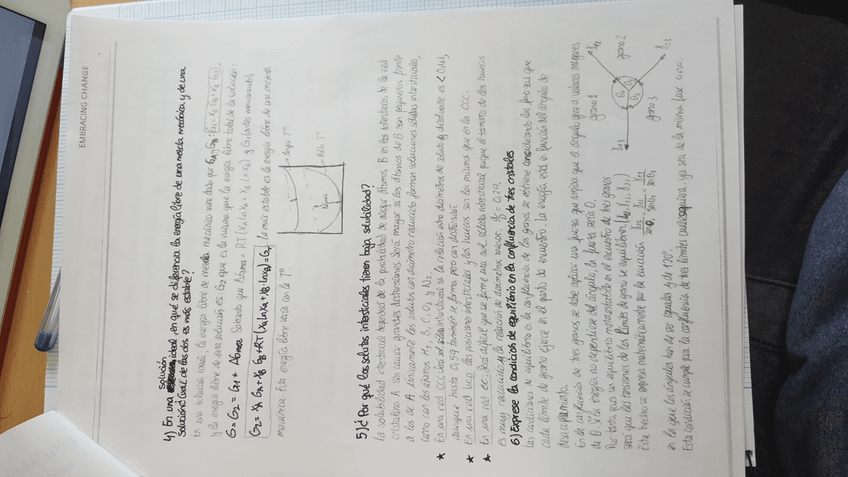 EMBRACING CHANGE
4) En una solución ideal, ¿en qué se diferencia la energía libre de una mezcla mecánica y de una
solución? ¿Cuál de las dos es más estable?
En una solución ideal, la energía libre de mezcla mecánica viene dada por
y la energía libre de una solución es G₂ que es la misma que la energía libre total de la solución:
G = G₂ = G₁ + ΔGmix
la más estable es la energía libre de una
mecánica. Esta energía libre varía con la Tª
Baja Tª
Alta Tª
5) ¿Por qué los solutos intersticiales tienen baja solubilidad?
la solubilidad intersticial depende de la posibilidad de alojar átomos B en los intersticios de la red
cristalina A sin causar grandes distorsiones. Será mayor si los átomos de B son pequeños frente
a los de A. Únicamente los solutos con diámetro reducido forman soluciones sólidas intersticiales,
como con los átomos H, B, C, O, y N₂.
★ En una red CCC será sol. sólida intersticial si la relación entre diámetros de soluto y disolvente es < 0,41,
aunque hasta 0,59 también se forma pero con distorsión.
★ En una red hcp las posiciones intersticiales y los huecos son los mismos que en la CCC.
★ En una red cc será difícil que se forme una sol. sólida intersticial porque el tamaño de los huecos
es muy reducido y la relación de diámetros menor, = 0,29.
6) Exprese la condición de equilibrio en la confluencia de tres cristales
Las condiciones de equilibrio en la confluencia de los granos se obtiene considerando las fuerzas que
cada límite de grano ejerce en el punto de encuentro. La energía está en función del ángulo de
desacoplamiento.
En la confluencia de tres granos se debe aplicar una fuerza que impida que el ángulo gire a valores mayores
de θ. Y la energía no depende del ángulo, la fuerza será 0.
Por tanto, para un equilibrio metaestable en el encuentro de tres granos
será que las tensiones de los límites de grano se equilibren
Este hecho se expresa matemáticamente por la ecuación
en la que los ángulos han de ser iguales y de 120º.
Esta condición se cumple para la confluencia de tres límites cualesquiera, ya sea de la misma fase o no.
grano 1
grano 2
grano 3